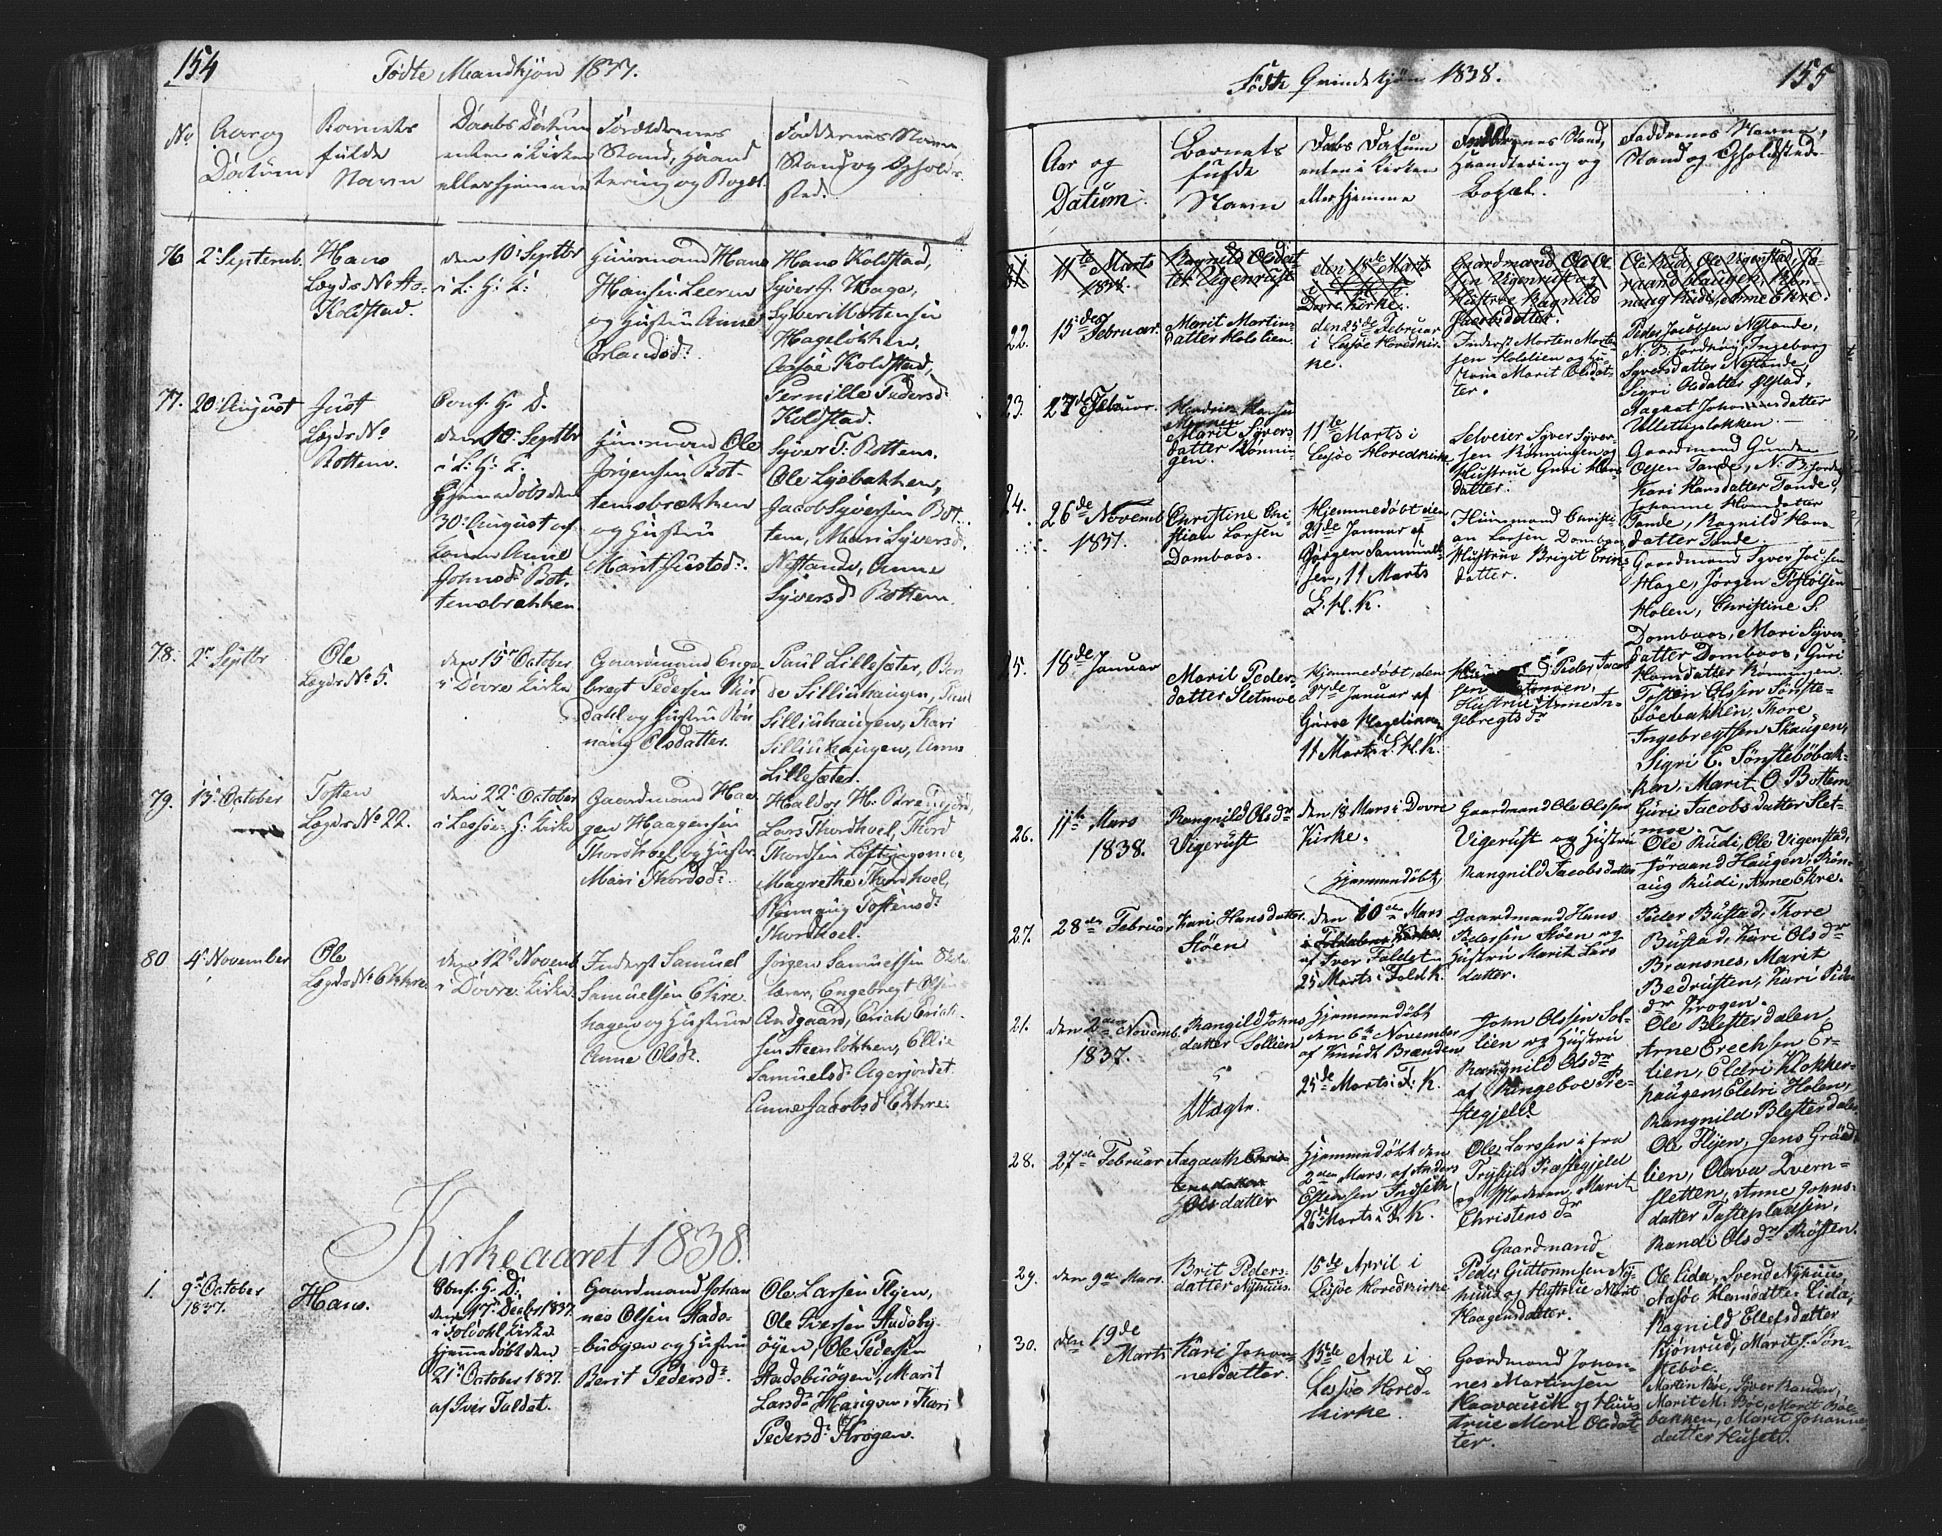 154
Födte Mandkjøn 1837.
No
Aar og
Datum
Barnets
fulde
Navn
Daabs Datum
enten i Kirken
eller hjemme
Forældrenes
Stand, Haand
tering og Bopæl
Faddernes Navn
Stand og Opholds
sted.
76
2 Septemb.
Hans
Lægds No
Koldstad.
den 10 Septbr
i L: H: K:
Huusmand Hans
Hansen Leeren
og Hustru Anne
Erlandsd.
Hans Koldstad,
Syver J. Hage,
Syver Mortensen
Hageløkken,
Koldstad,
Pernille Pedersd
Koldstad.
77.
20 August
Just
Lægds No
Bottem.
Conf. H. D.
den 10 Septbr
i L: H: K.
Hjemmedøbt den
30 August af
Konen Anne
Johnsd. Bot-
tensbrækken.
Huusmand Ole
Jørgensen Bot-
tensbrækken
og Hustru
Marit Justsd.
Syver T. Bottem.
Ole Lysbakken,
Jacob Syversen Bot-
tem, Mari Syversd.
Nestande, Anne
Syversd Bottem.
78.
2 Septbr
Ole
Lægds No 5.
den 15 October
i Dovre Kirke
Gaardmand Enge-
bregt Pedersen
dahl og Hustru Røn
naug Olsdatter.
Paul Lillesæter,
Silliuhaugen,
Silliuhaugen, Kari
Silliuhaugen, Anne
Lillesæter.
79.
15 October
Tosten
Lægds No 22.
den 22 October
i Lessøe H: Kirke
Gaardmand Haa-
gen Haagensen
Thordhoel og Hustr.
Mari Thordsd.
Haldor H.
Lars Thordhoel, Thord
Thordsen Løftingsmo,
Magrethe Thordhoel,
Rønnaug Tostensd.
Thordhoel.
80
4 November
Ole
Lægds No Ekkre
den 12 Novemb
i Dovre Kirke
Inderst Samuel
Samuelsen Ekre
hagen og Hustrue
Anne Olsd.
Jørgen Samuelsen
Engebregt Ols
Andgaard, Erich Erich-
sen Steenløkken, Ellie
Samuelsd. Agerjordet
Anne Jacobsd Ekkre.
Kirkeaaret 1838.
1.
9 October
1837.
Hans.
Conf. H. D.
den 17 Decbr 1837.
i Foldahl Kirke
Hjemmedøbt den
21 October 1837.
af Iver Faldet.
Gaardmand Johan
nes Olsen Stads-
buøyen og Hustru
Berit Pedersd.
Ole Larsen Flyen,
Ole Iversen Stadsby-
øyen, Ole Pedersen
Stadsbuøgen, Marit
Larsd. Haugen, Kari
Pedersd. Krogen.
155
Födte Qvindekjøn 1838.
Aar og
Datum.
Barnets
fulde
Navn
Daabs Datum
enten i Kirken
eller hjemme
Forældrenes Stand,
Haandtering og
Bopæl.
Faddrenes Navne,
Stand og Opholdsted.
21
11te Marts
1838.
Ragnild Olsdat
ter Vigenrust
den 18de Marts
i
Dovre Kirke.
Gaardmand Ole Ol
sen Vigenrust og
Hustrue Ragnild
Jacobsdatter.
Ole Rudi, Ole Vigenstad,
raand Haugen, Røn-
naug Rudi, Anne Ekre.
22.
15de Februar.
Marit Martins
datter Holslien.
den 25de Februar
i Lessøe Hovedkir-
ke.
Inderst Morten Morte-
sen Holslien og Hu-
strue Marit Olsdat-
ter.
Peder Jacobsen Nestande,
N: B: Ingeborg
Syversdatter Nestande,
Sigri Olsdatter
Aagaat Johannesdatter
Ulleklepløkken.
23.
27de Februar.
Marit Syvers-
datter Rønnin-
gen.
11te Marts i
Lessøe Hovedkirke
Selveier Syver Syver-
sen Rønningen og
Hustrue Guri Hans
datter.
Gaardmand Gunder
Olsen Tande, N: B:
Kari Hansdatter Tande,
Johanne Hansdatter
Tande, Ragnild Hans
datter Tande.
24.
26de Novemb
1837.
Christine Chri-
stian Larsen
Dombaas.
Hjemmedøbt den
21de Januar af
Jørgen Samuel-
sen, 11 Marts
L. H. K.
Huusmand Christi-
an Larsen Dombaas
Hustrue Brigit Erics
datter.
Gaardmand Syver
Hage, Jørgen Tostelsen
Holen, Christine S.
Dombaas, Mari Syver-
datter Dombaas, Guri
Hansdatter Rønningen.
25.
18de Januar
Marit Peders-
datter Sletmoe
Hjemmedøbt, den
27de Januar af
Gurve
11 Marts L. H. K.
Peder Jacob
sen
Hustrue Anne In-
gebregtsdr
Tosten Olsen Sønste-
böebakken, Thore
Ingebregtsen Haugen,
Sigri E. Sønstebøbak-
ken, Marit O. Bottem
Guri Jacobsdatter Slet-
moe.
26.
11te Mars
1838.
Rangnild Olsdr
Vigerust
den 18 Mars i Dovre
Kirke.
Gaardmand Ole Olssen
Vigerust og Hustru
Rangnild Jacobsdatter
Ole Rudi, Ole Vigenstad,
Jøraand Haugen, Røn-
aug Rudi, Anne Ekre.
27.
28de Februar
Kari Hansdatter.
Støen
Hjemmedøbt
den 10de Mars
af Iver Faldet
25 Marts i Fold K.
Gaardmand Hans
Pedersen Støen og
Hustru Marit Lars
datter.
Peder Bustad, Thore
Bustad, Kari Olsdr
Bransnes, Marit
Bedrusten, Kari Peder
dr Krogen.
21.
den 2den Novemb.
1837.
Rangild Johns
datter Sollien,
Hjemmedøbt
den 6te November
af Knudt Brænden
25de Marts i F. K.
John Olssen Sol-
lien og Hustru
Rangnild Olsdr
af Ringeboe Præ-
stegjeld
Ole Blesterdalen,
Arne Erechsen Er-
lien, Eldri Klokker-
haugen, Eldri Holen,
Rangnild Blesterdalen
28.
27de Februar
Aagaath
Olsdatter
Hjemmedøbt den
2den Mars. af Anders
Estensen Indseth
26de Marts i F. K.
Ole Larssen i fra
Trysild Præstegjeld
og Moderen, Marit
Christensdr
Ole Flyen, Jens Graad-
lien, Olava Qvern-
sletten, Anne Johns-
datter Tastepladsen,
Randi Olsdr Røsten.
29.
den 9de Mars.
Brit Peders-
datter Nyhuus.
15de April i
Lessøe Hovedkirke
Gaardmand
Peder Guttormsen Ny-
huus og Hustrue Marit
Haagensdatter.
Ole Lida, Svend Nyhuus,
Hansdatter Lida,
Ragnild Ellefsdatter
Marit J. Søn-
stebøe.
30.
den 19de
Marts
Kari Johan-
nesdatter.
15de Aril i
Lessøe Hoved-
kirke.
Gaardmand Johan-
nes Martinsen
og Huus
true Mari Olsdat-
ter.
Martin Bøe, Syver Randen,
Marit M. Bøe, Marit Bøe-
bakken, Marit Johannes
datter Huset.